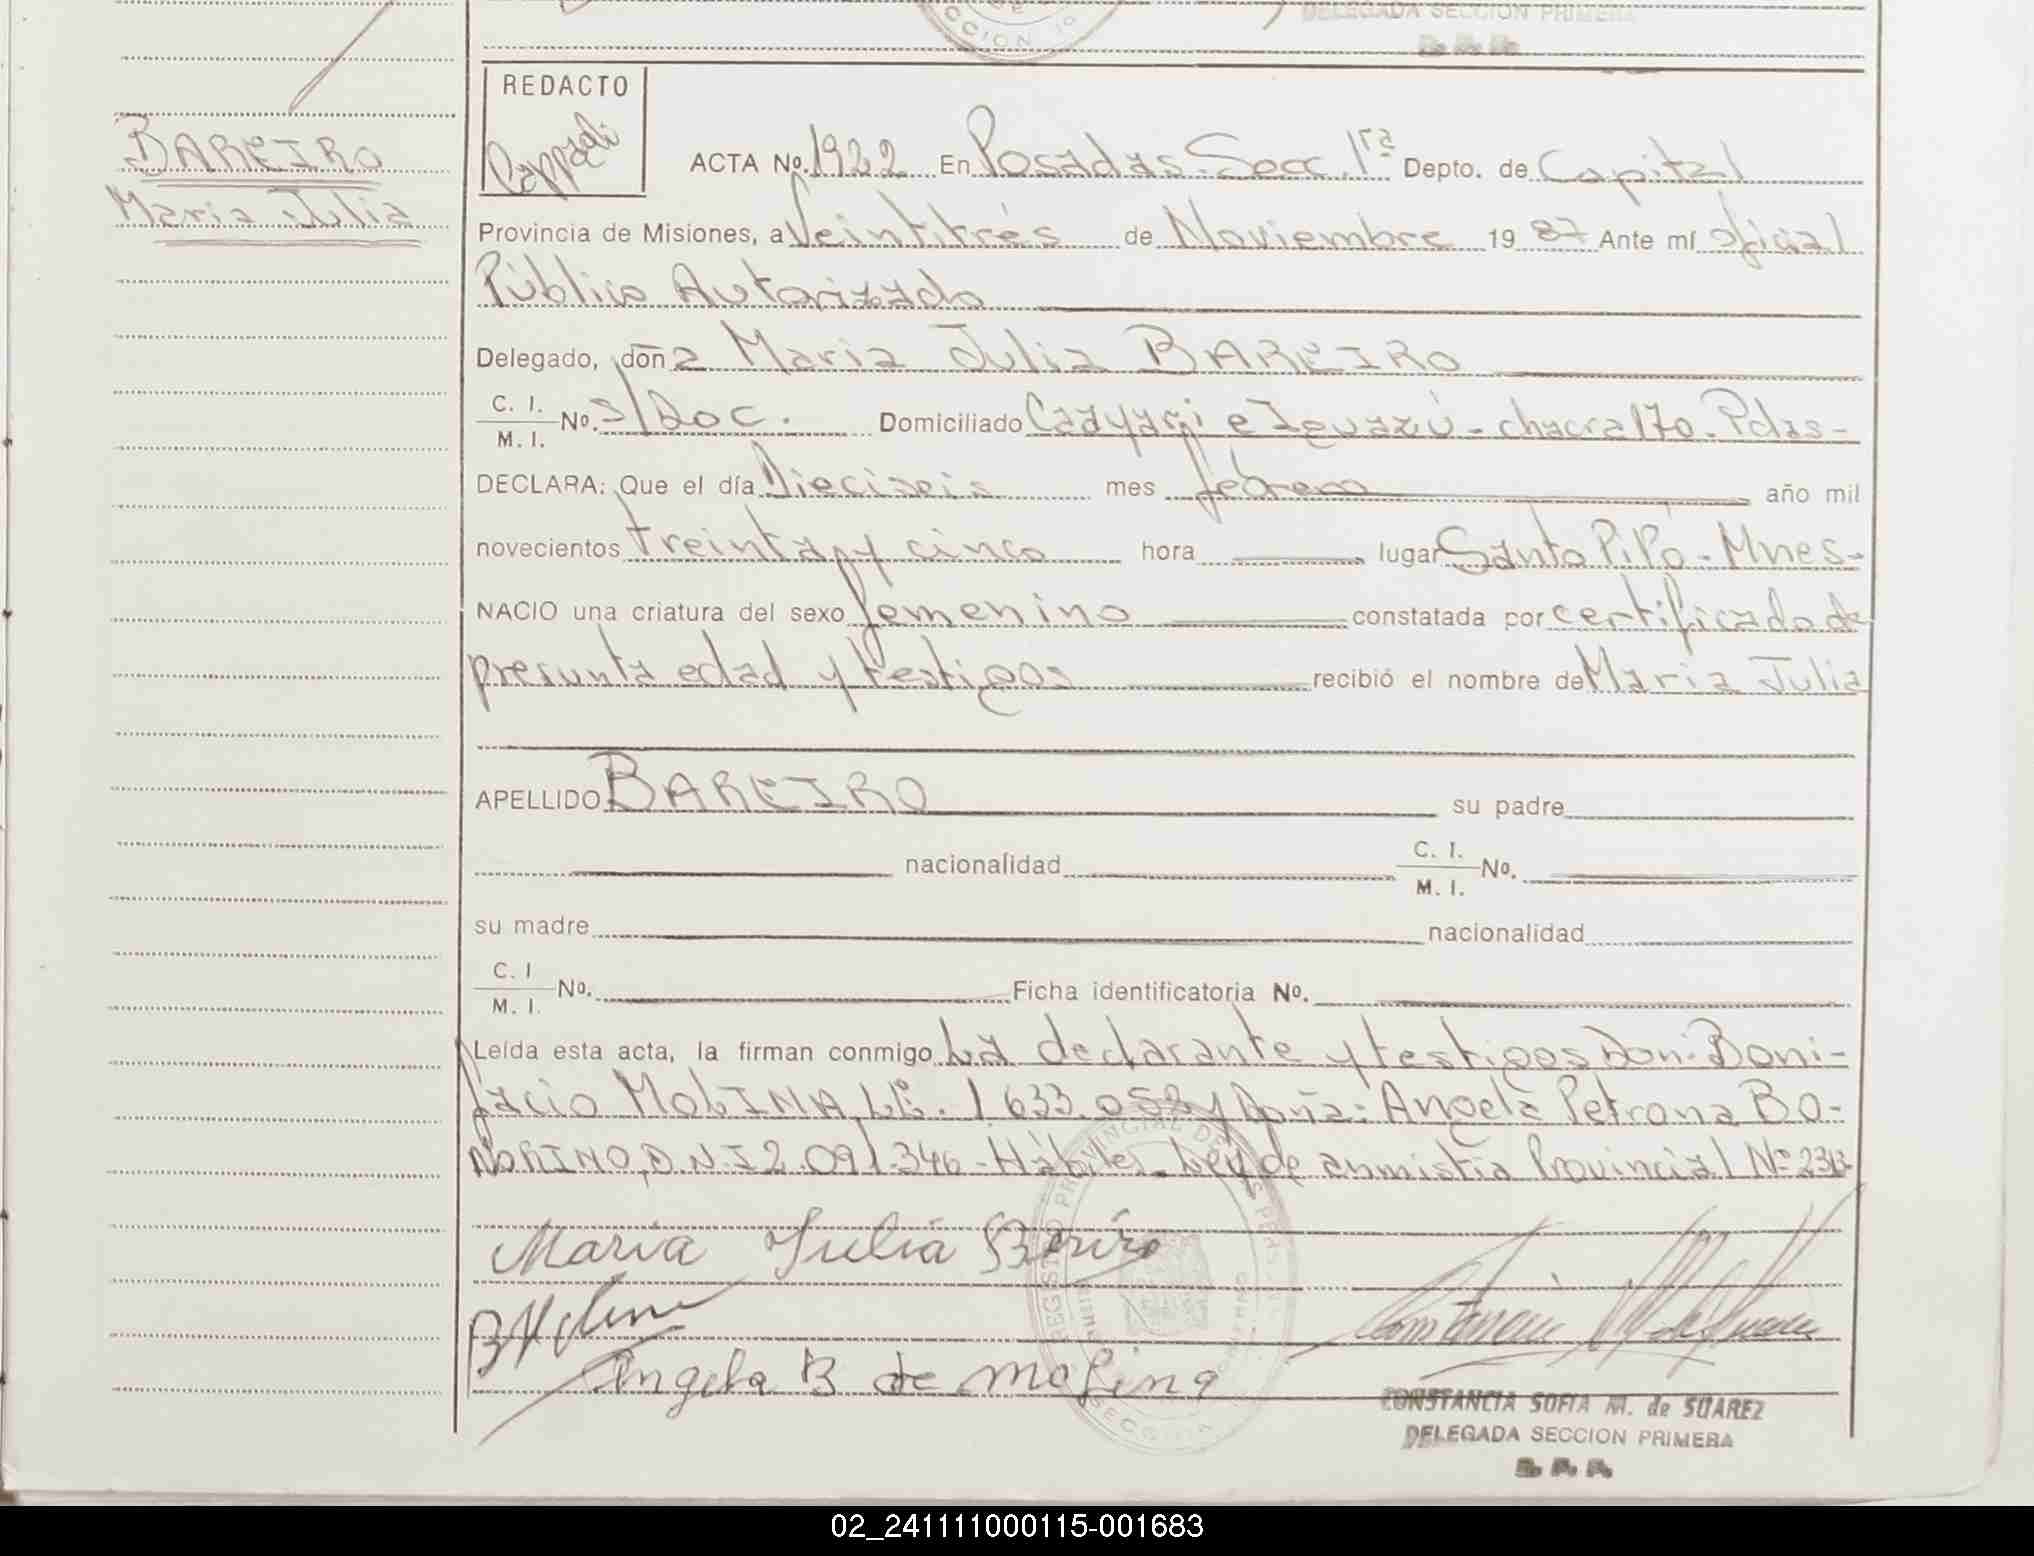 CCION 1o
DELEGADA SECCION PRIMERA
R. P. P.
REDACTO
BAREIRO
Maria Julia
ACTA No. 1922 En Posadas-Secc. 1ra Depto. de Capital
Provincia de Misiones, a Veintitrés de Noviembre 1987 Ante mí oficial
Público Autorizado
Delegado, doña Maria Julia BAREIRO
C. I.
M. I. No. S/Doc. Domiciliado Caayari e Iguazú - chacra 170. Pdas-
DECLARA: Que el día Dieciseis mes febrero año mil
novecientos treinta y cinco hora lugar Santo Pipó - Mnes-
NACIO una criatura del sexo femenino constatada por certificado de
presunta edad y testigos recibió el nombre de Maria Julia
APELLIDO BAREIRO su padre
nacionalidad C. I.
M. I. No.
su madre nacionalidad
C. I
M. I. No. Ficha identificatoria No.
Leída esta acta, la firman conmigo La declarante y testigos Don: Boni-
facio MOLINA, L.E. 1.633.058 y Doña: Angela Petrona BO-
NORINO, D.N.I 2.091.346 - Hábiles - Ley de amnistía Provincial Nº
Maria Julia Bariro
B Molina
Angela B de molina
CONSTANCIA SOFIA M. de SUAREZ
DELEGADA SECCION PRIMERA
R. P. P.
02_241111000115-001683